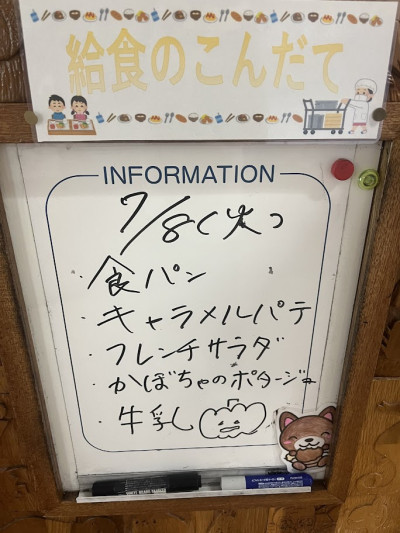 給食のこんだて
INFORMATION
7/8(火)
・食パン
・キャラメルパテ
・フレンチサラダ
・かぼちゃのポタージュ
・牛乳